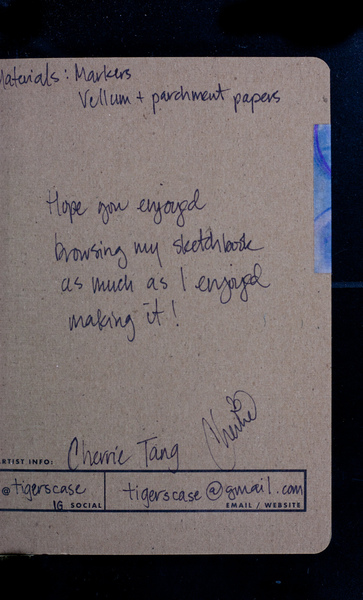 Materials: Markers
Vellum + parchment papers
Hope you enjoyed
browsing my sketchbook
as much as I enjoyed
making it!
Cherrie
ARTIST INFO: Cherrie Tang
@tigerscase
IG SOCIAL
tigerscase@gmail.com
EMAIL / WEBSITE